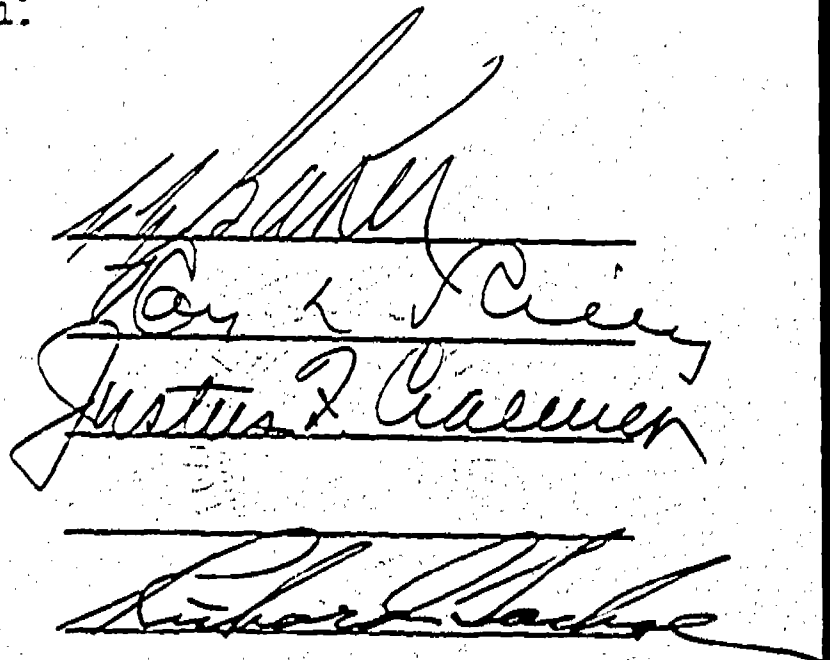 Baker
Ray L Riley
Justus F. Craemer
Richard Sachse